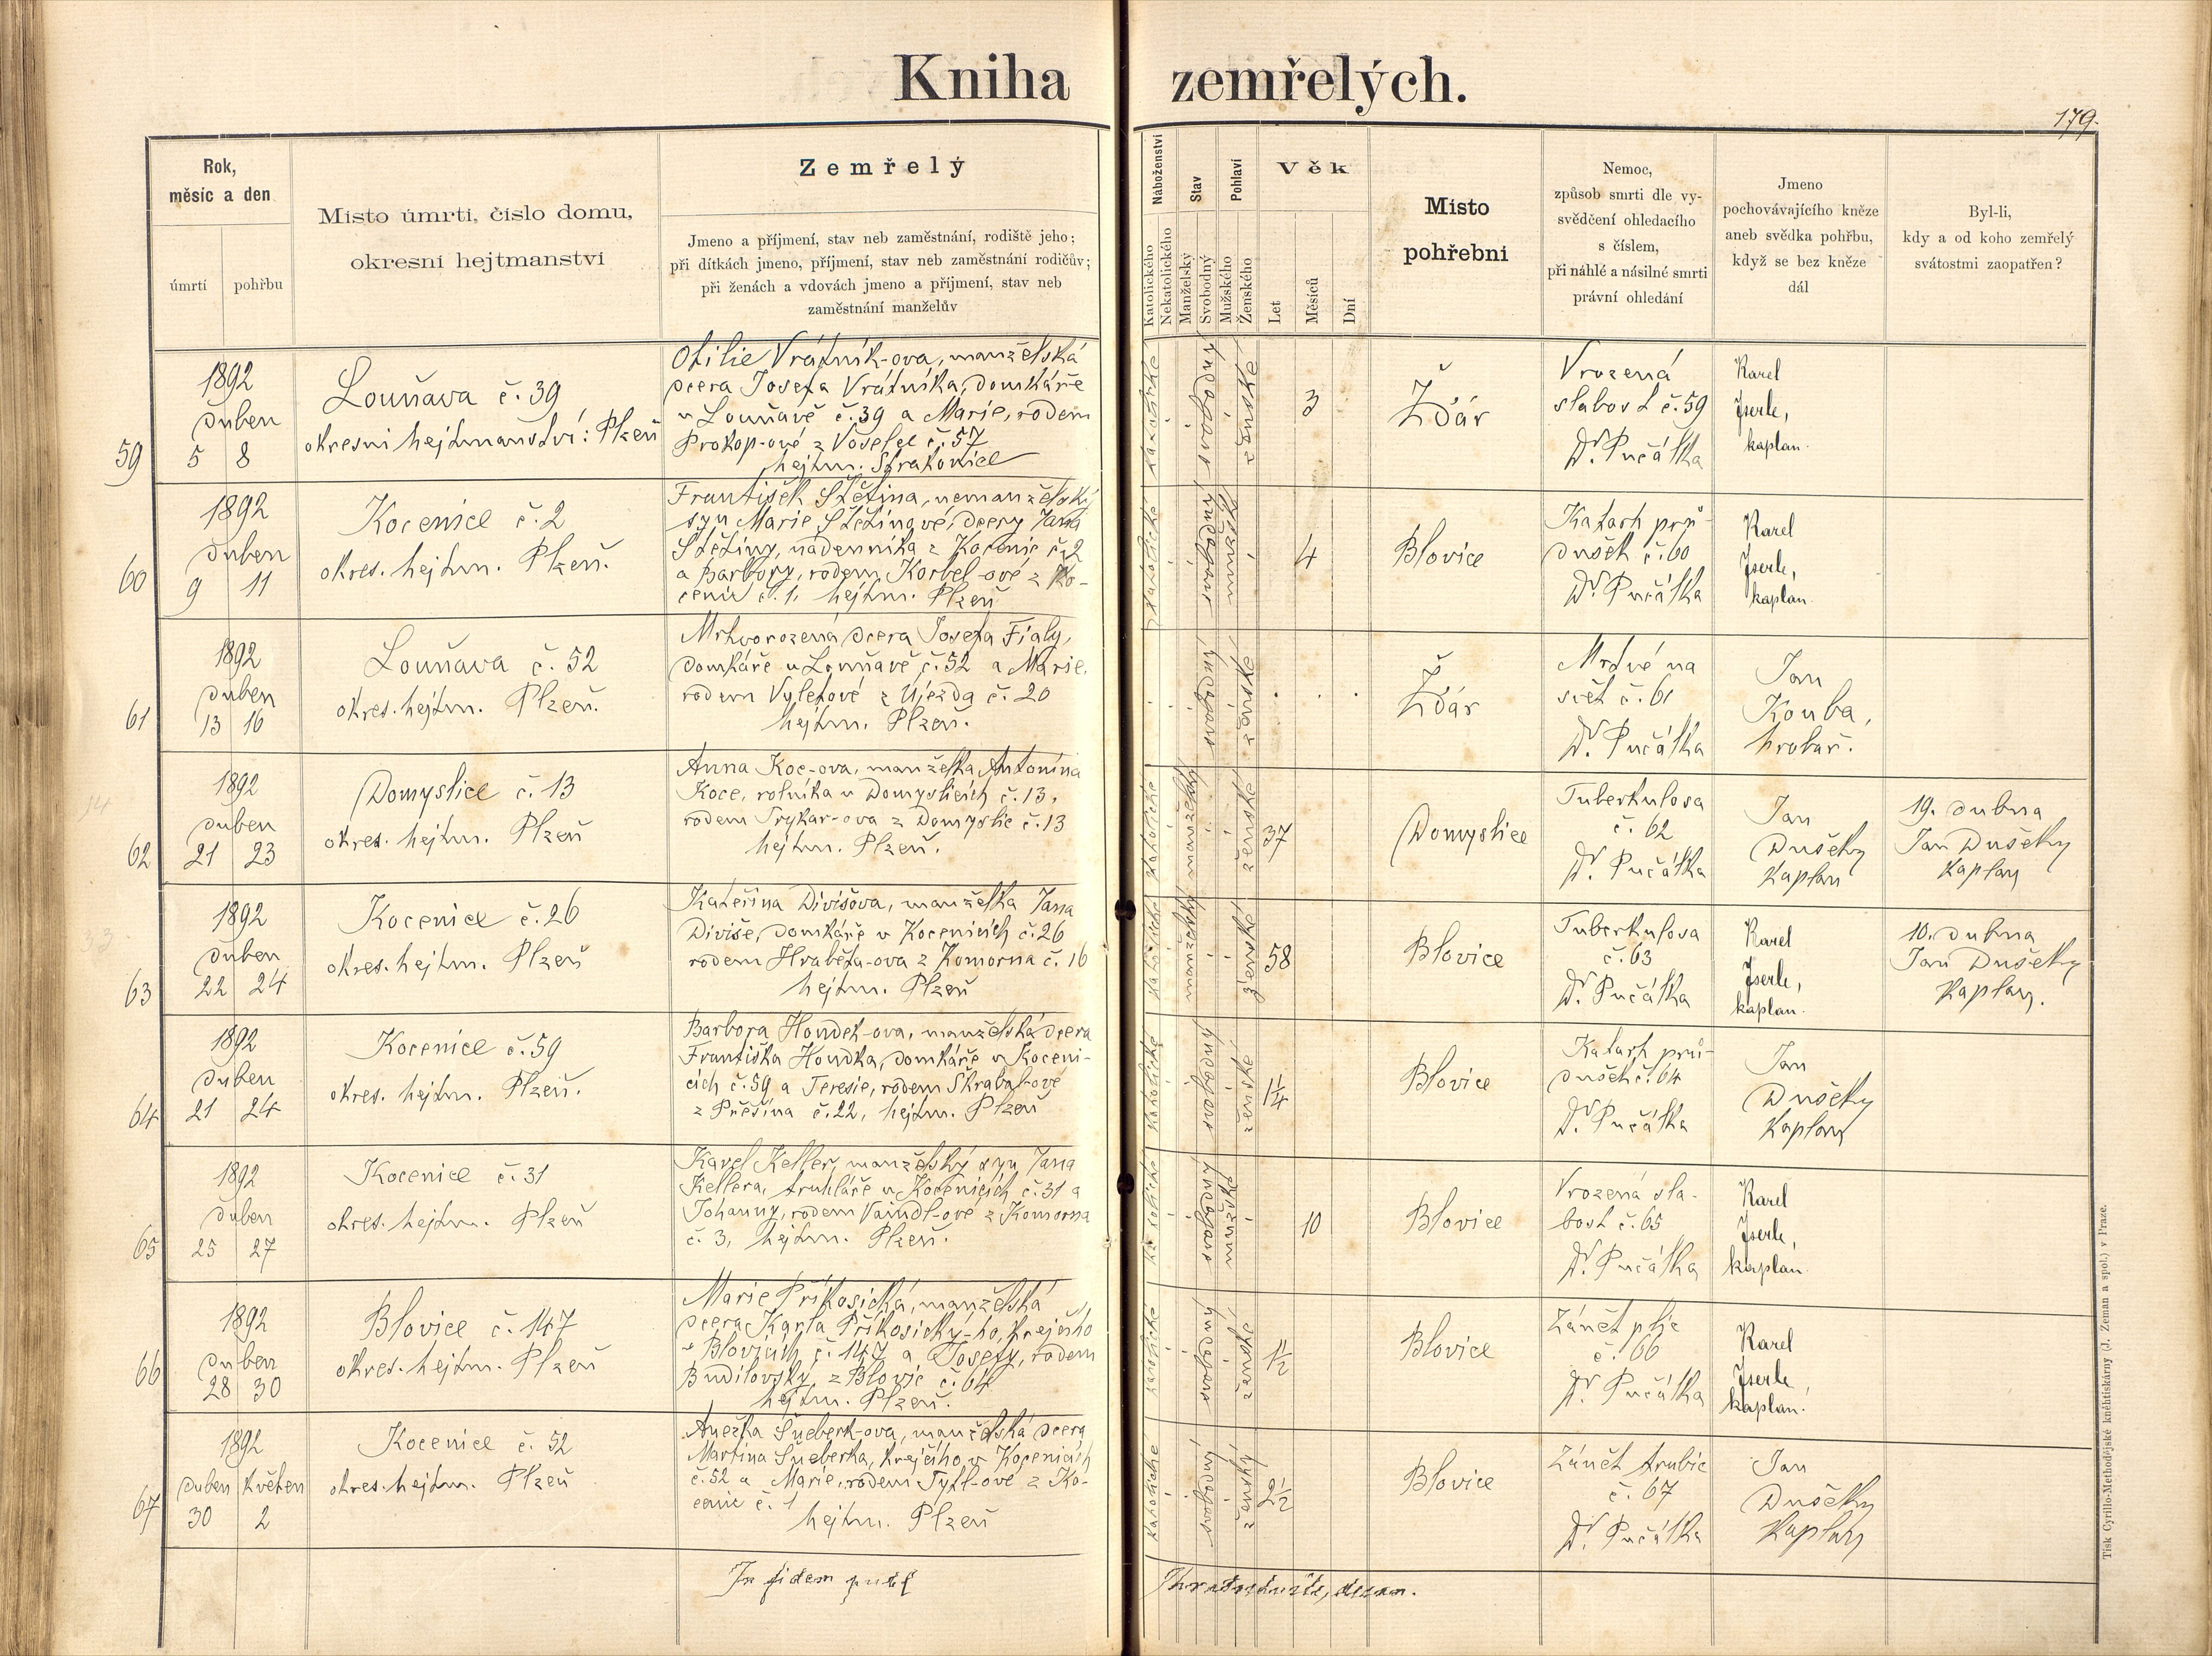 Kniha zemřelých.
179.
Rok,
měsíc a den
úmrtí
pohřbu
Místo úmrtí, číslo domu,
okresní hejtmanství
Zemřelý
Jmeno a příjmení, stav neb zaměstnání, rodiště jeho;
při dítkách jmeno, příjmení, stav neb zaměstnání rodičův;
při ženách a vdovách jmeno a příjmení, stav neb
zaměstnání manželův
Náboženství
Katolického
Nekatolického
Stav
Manželský
Svobodný
Pohlaví
Mužského
Ženského
Věk
Let
Měsíců
Dní
Místo
pohřební
Nemoc,
způsob smrti dle vy-
svědčení ohledacího
s číslem,
při náhlé a násilné smrti
právní ohledání
Jmeno
pochovávajícího kněze
aneb svědka pohřbu,
když se bez kněze
dál
Byl-li,
kdy a od koho zemřelý
svátostmi zaopatřen?
59
1892
duben
5 8
Louňava č. 39
okresní hejtmanství: Plzeň
Otilie Vrátník-ova, manželská
dcera Josefa Vrátníka, domkáře
v Louňavě č. 39 a Marie, rodem
Prokop-ové z Voselec č. 57
hejtm. Strakonice
katolické
svobodný
ženské
3
Žďár
Vrozená
slabost č. 59
Dr. Pučálka
Karel
Jserle,
kaplan.
60
1892
duben
9 11
Kocenice č. 2
okres. hejtm. Plzeň.
František Štětina, nemanželský
syn Marie Štětinové, dcery Jana
Štětiny, nádenníka z Kocenic č. 2
a Barbory, rodem Korbel-ové z Ko-
cenic č. 1, hejtm. Plzeň
katolické
svobodný
mužský
4
Blovice
Katarh prů-
dušek č. 60
Dr. Pučálka
Karel
Jserle,
kaplan.
61
1892
duben
13 16
Louňava č. 52
okres. hejtm. Plzeň.
Mrtvorozená dcera Josefa Fialy,
domkáře v Louňavě č. 52 a Marie,
rodem Vyletové z Újezda č. 20
hejtm. Plzeň.
svobodný
ženské
Žďár
Mrtvé na
svět č. 61
Dr. Pučálka
Jan
Kouba,
hrobař.
62
1892
duben
21 23
Domyslice č. 13
okres. hejtm. Plzeň
Anna Koc-ova, manželka Antonína
Koce, rolníka v Domyslicích č. 13,
rodem Trykar-ova z Domyslic č. 13
hejtm. Plzeň.
katolické
manželský
ženské
37
Domyslice
Tuberkulosa
č. 62
Dr. Pučálka
Jan
Dušek
kaplan
19. dubna
Jan Dušek
kaplan
63
1892
duben
22 24
Kocenice č. 26
okres. hejtm. Plzeň
Kateřina Divišova, manželka Jana
Diviše, domkáře v Kocenicích č. 26
rodem Hraběta-ova z Komorna č. 16
hejtm. Plzeň
katolické
manželský
ženské
58
Blovice
Tuberkulosa
č. 63
Dr. Pučálka
Karel
Jserle,
kaplan.
10. dubna
Jan Dušek
kaplan.
64
1892
duben
21 24
Kocenice č. 59
okres. hejtm. Plzeň.
Barbora Houdek-ova, manželská dcera
Františka Houdka, domkáře v Koceni-
cích č. 59 a Teresie, rodem Škrabal-ové
z Přešína č. 22, hejtm. Plzeň
katolické
svobodný
ženské
1 1/4
Blovice
Katarh prů-
dušek č. 64
Dr. Pučálka
Jan
Dušek
kaplan
65
1892
duben
25 27
Kocenice č. 31
okres. hejtm. Plzeň
Karel Keller, manželský syn Jana
Kellera, truhláře v Kocenicích č. 31 a
Johanny, rodem Vaindl-ové z Komorna
č. 3, hejtm. Plzeň.
katolické
svobodný
mužský
10
Blovice
Vrozená sla-
bost č. 65
Dr. Pučálka
Karel
Jserle,
kaplan.
66
1892
duben
28 30
Blovice č. 147
okres. hejtm. Plzeň
Marie Příkosická, manželská
dcera Karla Příkosický-ho, krejčího
v Blovicích č. 147 a Josefy, rodem
Budilovsky, z Blovic č. 64
hejtm. Plzeň.
katolické
svobodný
ženské
1 1/2
Blovice
Zánět plic
č. 66
Dr. Pučálka
Karel
Jserle,
kaplan.
67
1892
duben květen
30 2
Kocenice č. 52
okres. hejtm. Plzeň
Anežka Šneberk-ova, manželská dcera
Martina Šneberka, krejčího v Kocenicích
č. 52 a Marie, rodem Tytl-ové z Ko-
cenic č. 1
hejtm. Plzeň
katolické
svobodný
ženský
2 1/2
Blovice
Zánět trubic
č. 67
Dr. Pučálka
Jan
Dušek
kaplan
In fidem
Tisk Cyrillo-Methodějské knihtiskárny (J. Zeman a spol.) v Praze.